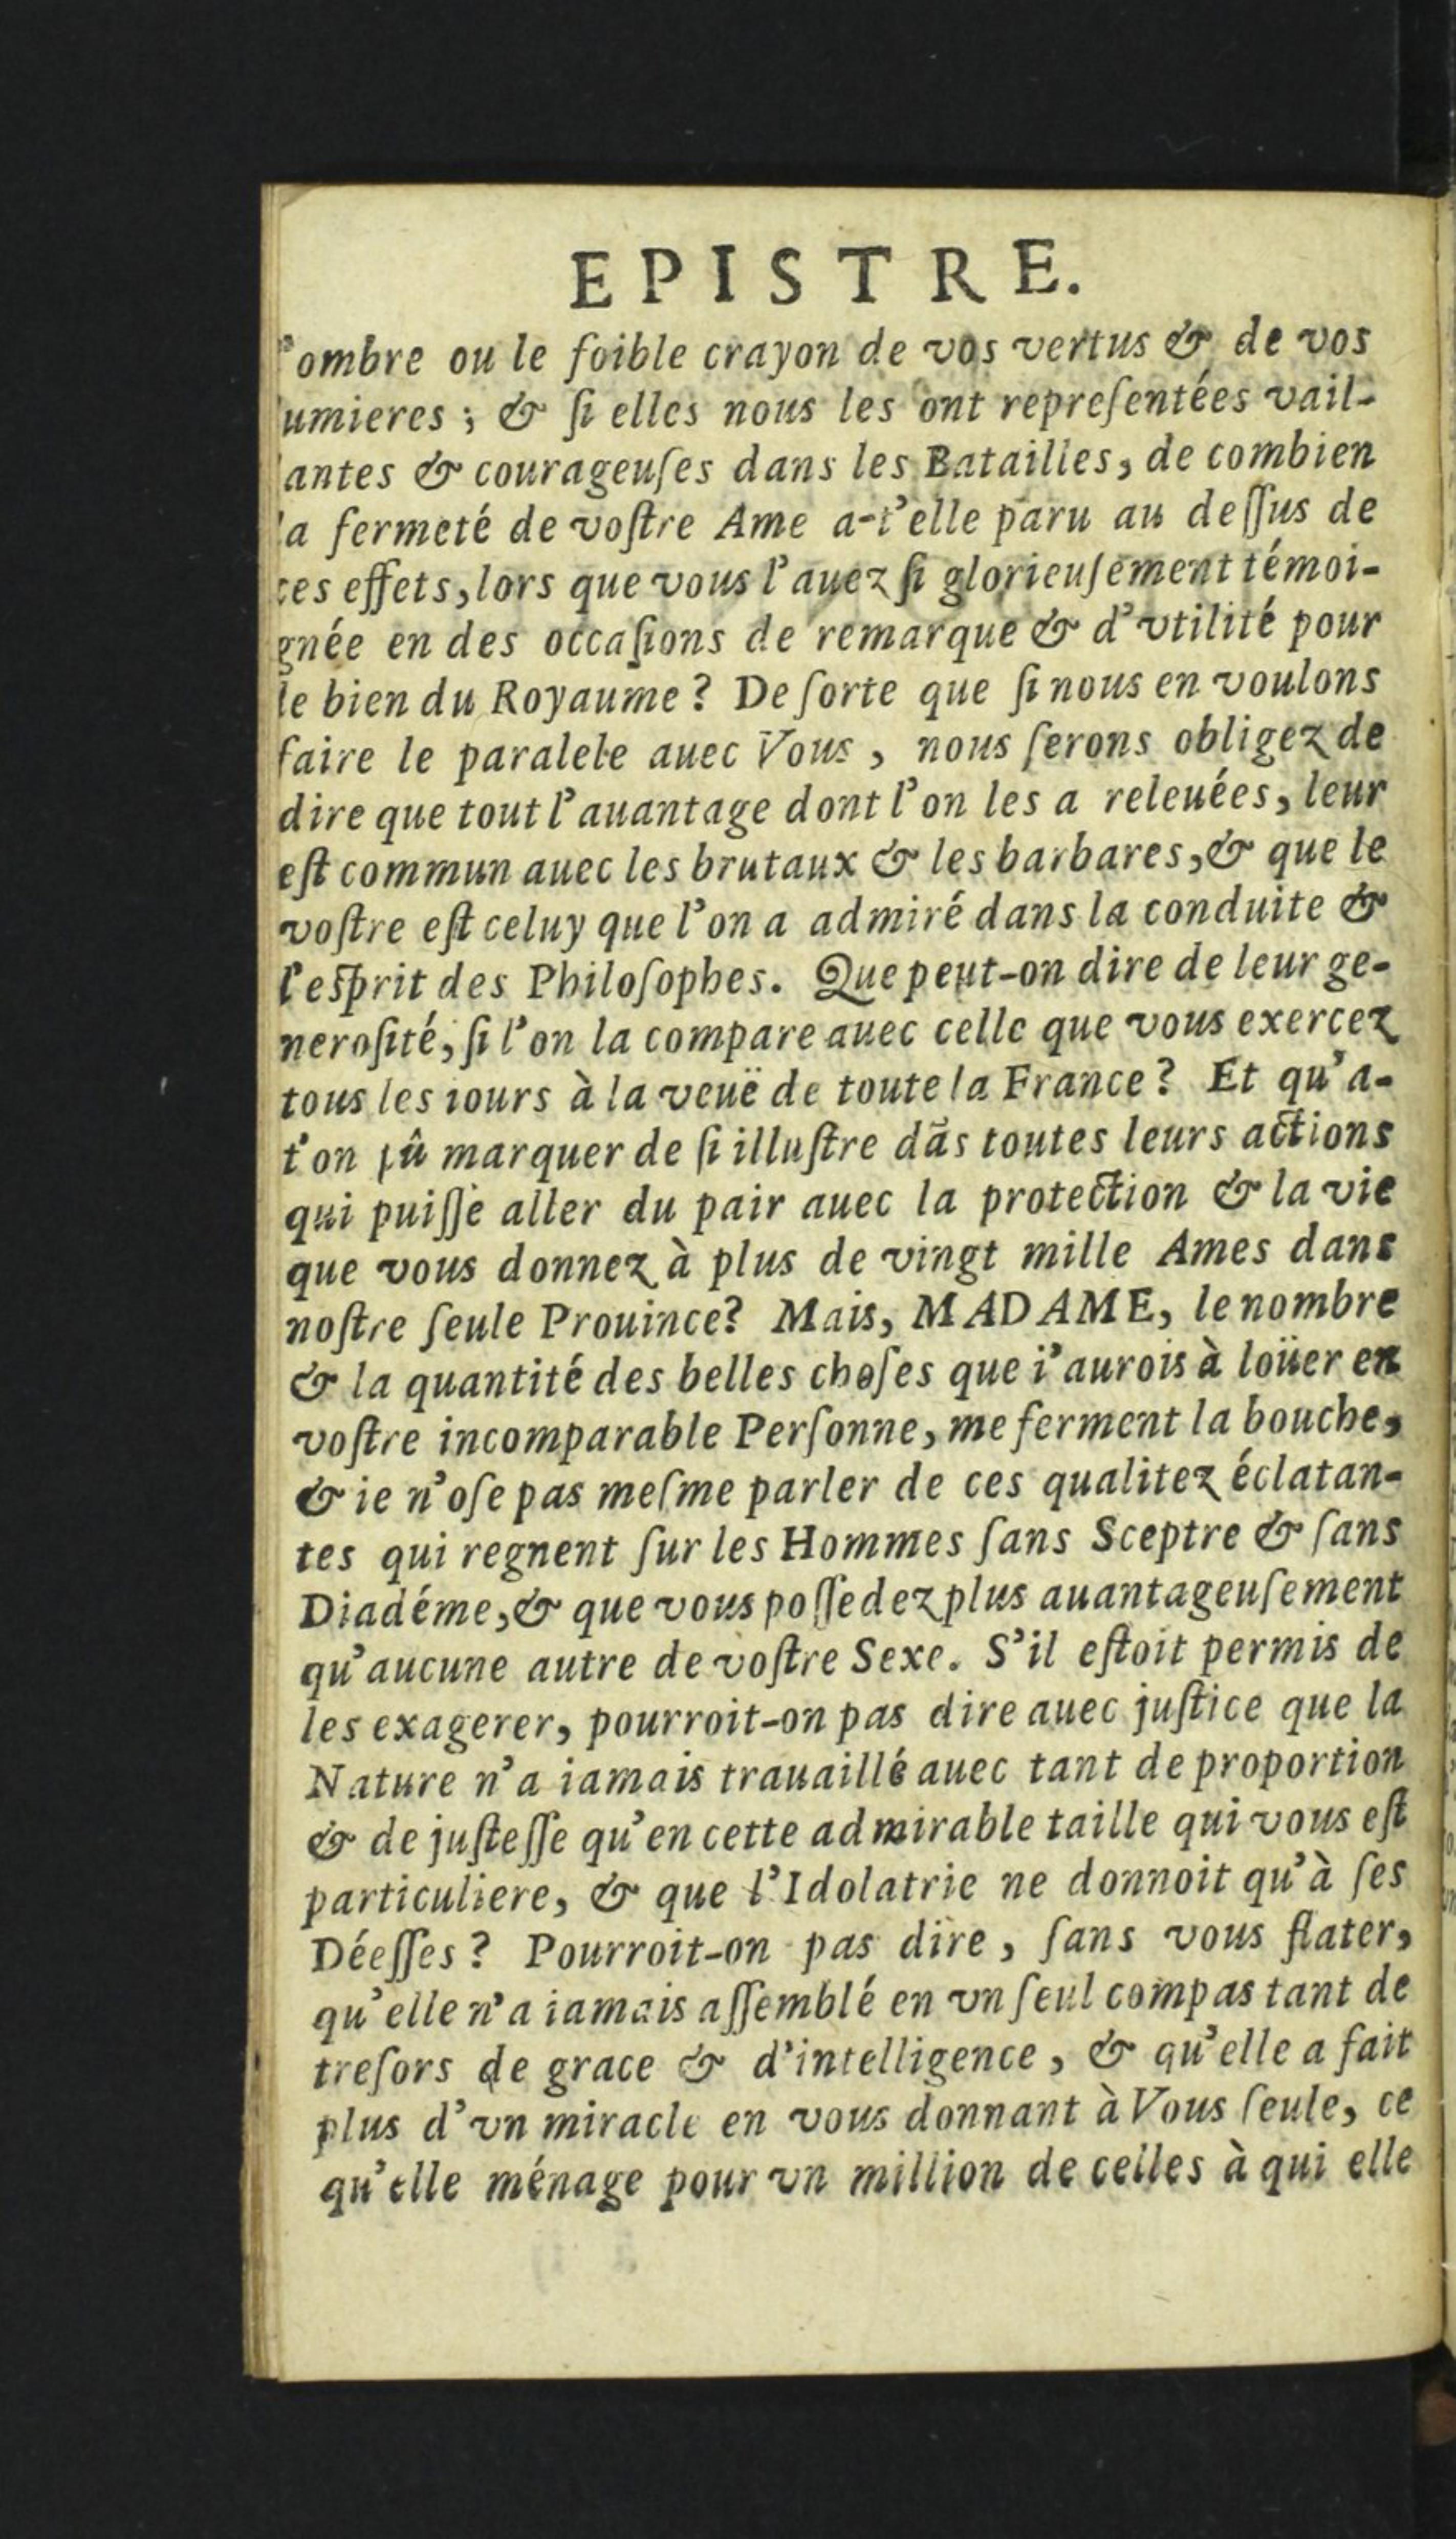 EPISTRE.
'ombre ou le foible crayon de vos vertus & de vos
umieres ; & ſi elles nous les ont repreſentées vail-
antes & courageuſes dans les Batailles, de combien
la fermeté de voſtre Ame a-t'elle paru au deſſus de
ces effets, lors que vous l'auez ſi glorieuſement témoi-
gnée en des occaſions de remarque & d'vtilité pour
le bien du Royaume ? De ſorte que ſi nous en voulons
faire le paralele auec Vous , nous ſerons obligez de
dire que tout l'auantage dont l'on les a releuées, leur
eſt commun auec les brutaux & les barbares, & que le
voſtre eſt celuy que l'on a admiré dans la conduite &
l'eſprit des Philoſophes. Que peut-on dire de leur ge-
neroſité, ſi l'on la compare auec celle que vous exercez
tous les iours à la veuë de toute la France ? Et qu'a-
t'on pû marquer de ſi illuſtre dãs toutes leurs actions
qui puiſſe aller du pair auec la protection & la vie
que vous donnez à plus de vingt mille Ames dans
noſtre ſeule Prouince? Mais, MADAME, le nombre
& la quantité des belles choſes que i'aurois à loüer en
voſtre incomparable Perſonne, me ferment la bouche,
& ie n'oſe pas meſme parler de ces qualitez éclatan-
tes qui regnent ſur les Hommes ſans Sceptre & ſans
Diadéme, & que vous poſſedez plus auantageuſement
qu'aucune autre de voſtre Sexe. S'il eſtoit permis de
les exagerer, pourroit-on pas dire auec juſtice que la
Nature n'a iamais trauaillé auec tant de proportion
& de juſteſſe qu'en cette admirable taille qui vous eſt
particuliere, & que l'Idolatrie ne donnoit qu'à ſes
Déeſſes ? Pourroit-on pas dire , ſans vous flater,
qu'elle n'a iamais aſſemblé en vn ſeul compas tant de
treſors de grace & d'intelligence , & qu'elle a fait
plus d'vn miracle en vous donnant à Vous ſeule, ce
qu'elle ménage pour vn million de celles à qui elle